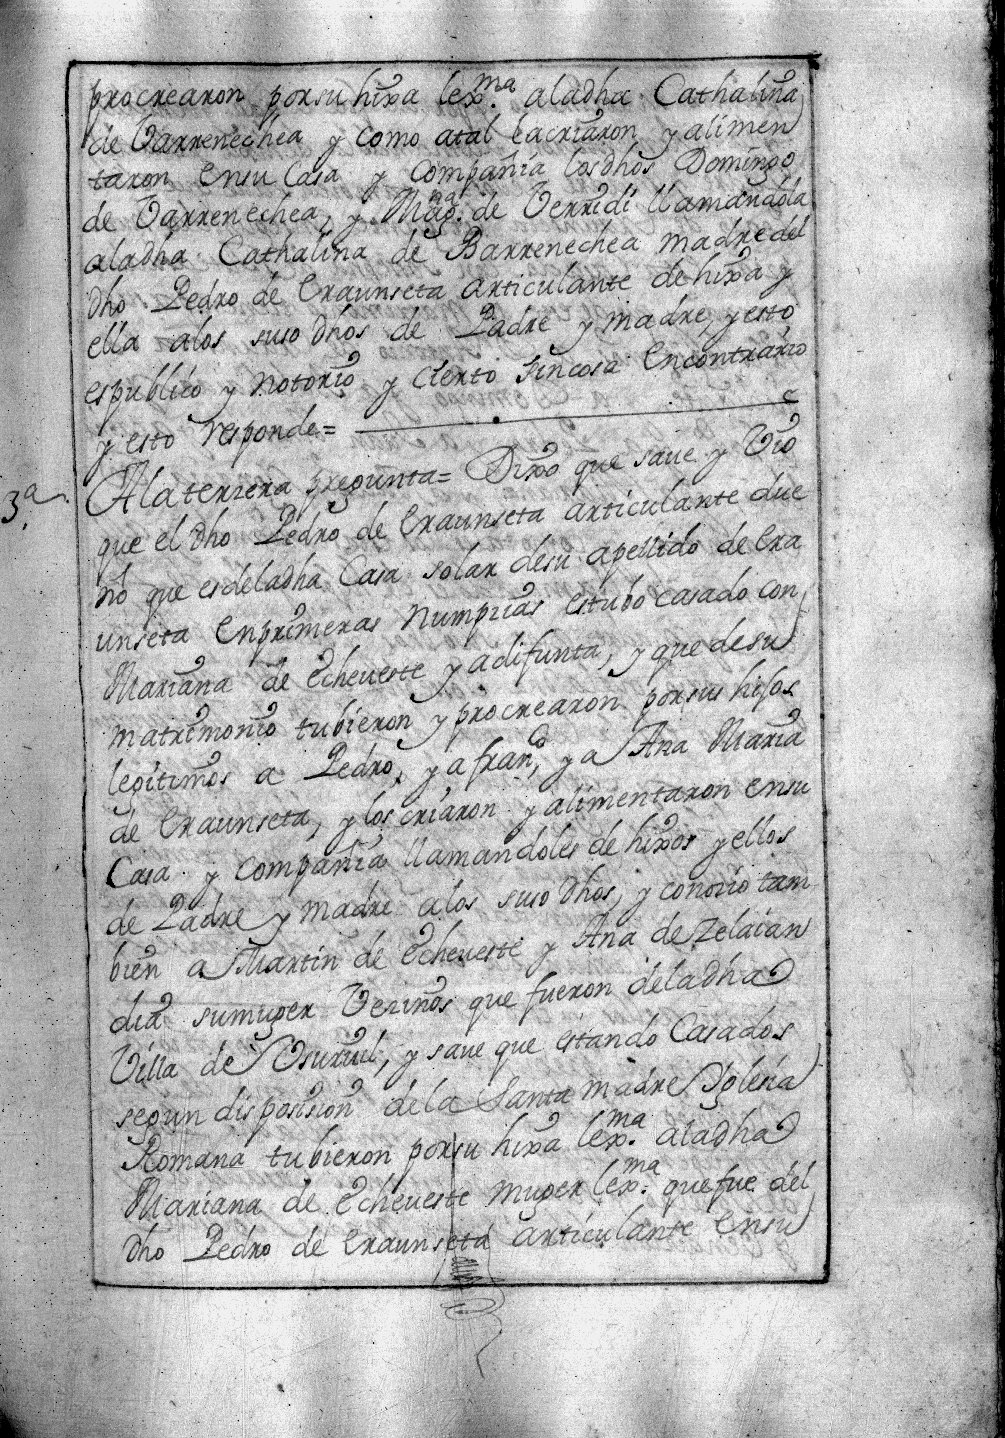 procrearon por su hixa lexma. a la dha Cathalina
de Varrenechea y como atal la criaron y alimen
taron en su Casa y Compañia los dhos Domingo
de Varrenechea, y Mag.na de Verridi llamandola
a la dha Cathalina de Barrenechea madre del
dho Pedro de Eraunseta articulante de hixa y
ella alos suso dhos de Padre y madre, y esto
es publico y notorio y cierto sin cosa en contrario
y esto responde=
3.a A la tercera pregunta= Dixo que save y Vio
que el dho Pedro de Eraunseta articulante due
ño que es de la dha Casa solar de su apellido de Era
unseta en primeras numpcias estubo casado con
Mariana de Echeveste ya difunta, y que de su
matrimonio tubieron y procrearon por sus hijos
legitimos a Pedro, y a fran.co, y a Ana Maria
de Eraunseta, y los criaron y alimentaron en su
Casa y compañia llamandoles de hixos y ellos
de Padre y madre alos suso dhos, y conocio tam
bien a Martin de Echeveste y Ana de Zelaian
dia su muger Vecinos que fueron de la dha
Villa de Vsurvil, y save que estando Casados
segun disposision de la Santa madre Iglesia
Romana tubieron por su hixa lexma. a la dha
Mariana de Echeveste muger lexma. que fue del
dho Pedro de Eraunseta articulante en su